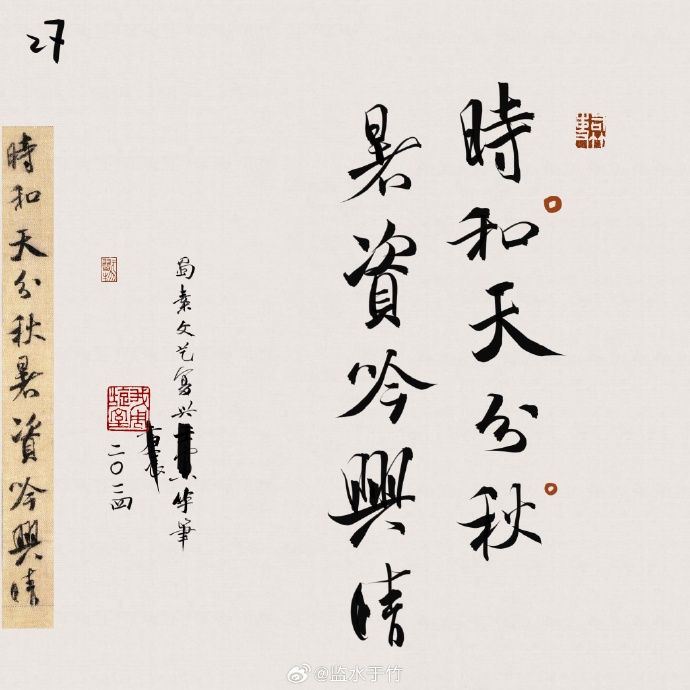 27
時和天分秋
暑資吟興清
蜀素文艺写兴
華筆
二〇二四
時和天分秋暑資吟興清
@监水于竹